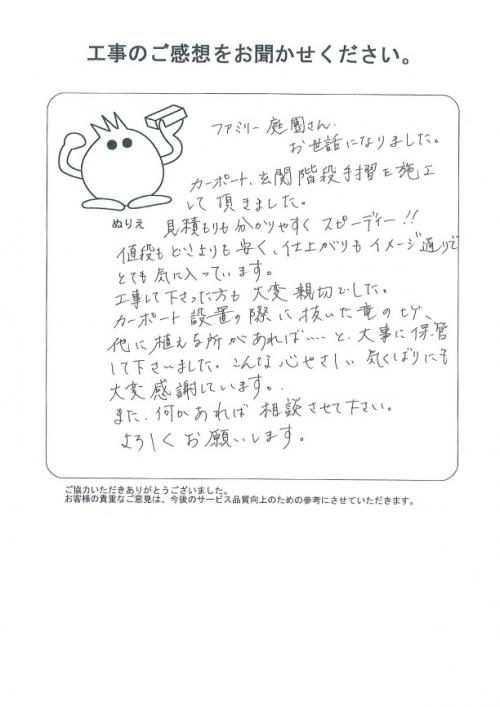 工事のご感想をお聞かせください。
ファミリー庭園さん。
お世話になりました。
カーポート、玄関階段手摺を施工
して頂きました。
ぬりえ
見積もりも分かりやすくスピーディー!!
値段もどこよりも安く、仕上がりもイメージ通りで
とても気に入っています。
工事して下さった方も大変親切でした。
カーポート設置の際に抜いた竜のヒゲ、
他に植える所があれば‥‥と、大事に保管
して下さいました。こんな心やさしい気くばりにも
大変感謝しています。
また、何かあれば相談させて下さい。
よろしくお願いします。
ご協力いただきありがとうございました。
お客様の貴重なご意見は、今後のサービス品質向上のための参考にさせていただきます。